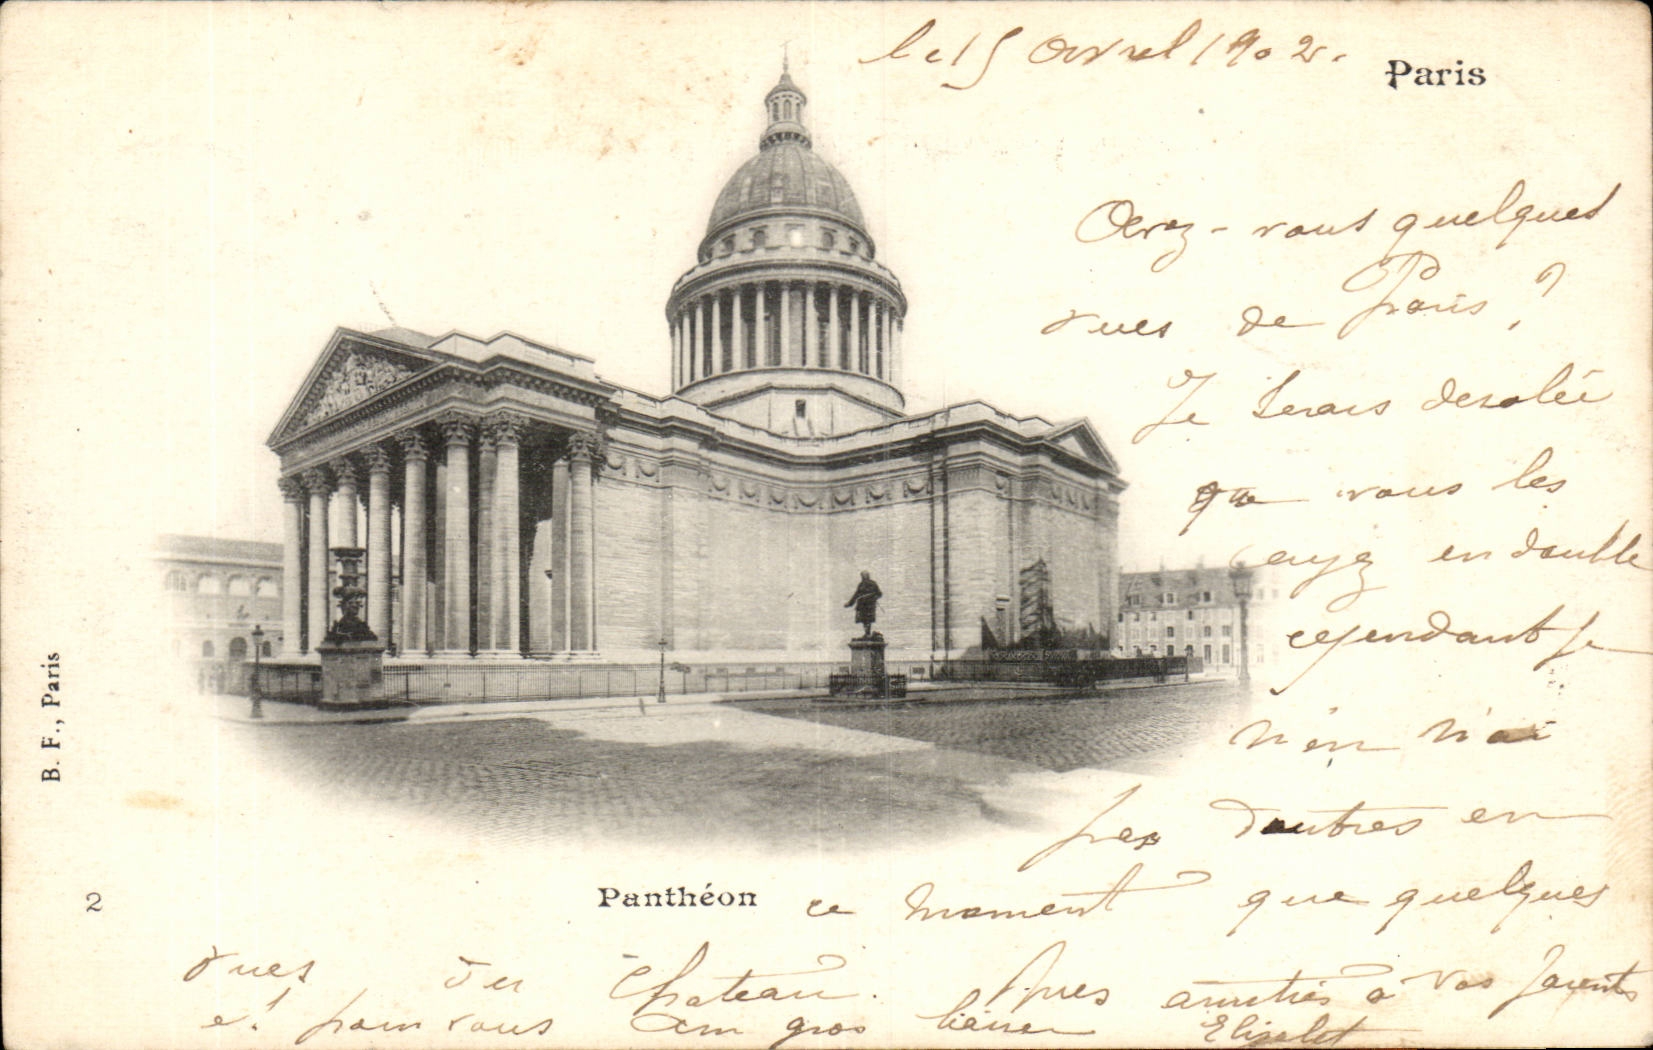 le 15 Avril 1902.
Paris
Avez-vous quelques
vues de Paris ?
Je serais desolée
que vous les
ayez en double
cependant je
n'en n'ai
pas d'autres en
ce moment que quelques
vues du Chateau. Mes amitiés à vos parents
et pour vous un gros baiser
Elisabet
Panthéon
B. F., Paris
2